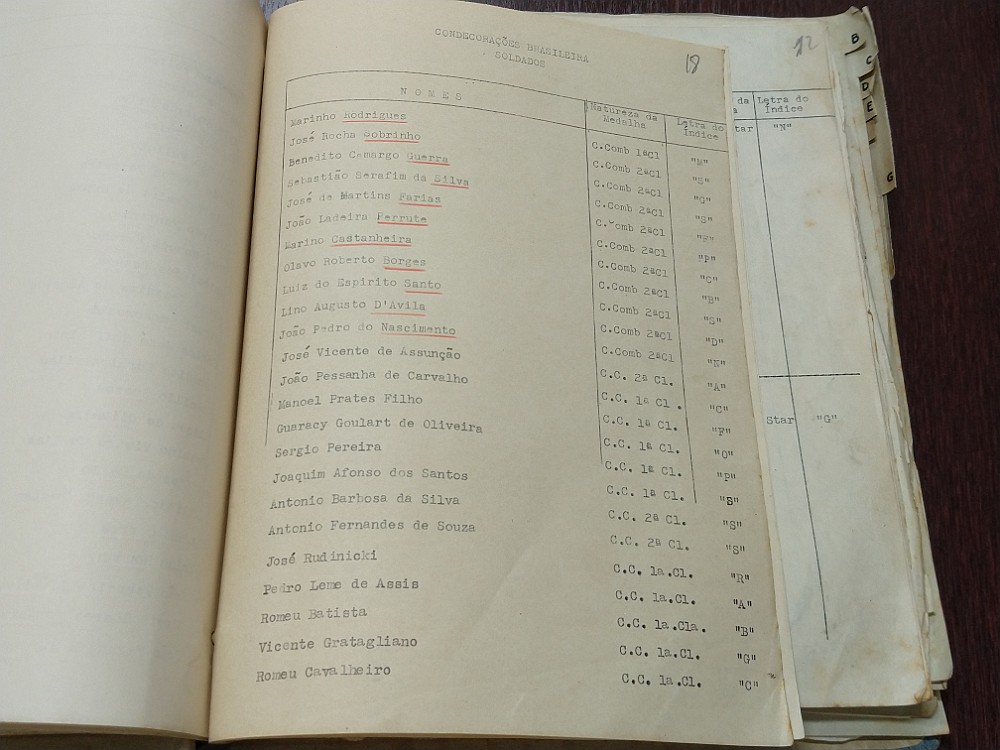 CONDECORAÇÕES BRASILEIRA
SOLDADOS
18
NOMES Natureza da Medalha Letra do Índice
Marinho Rodrigues C.Comb 1ªCl "M"
José Rocha Sobrinho C.Comb 2ªCl "S"
Benedito Camargo Guerra C.Comb 2ªCl "G"
Sebastião Serafim da Silva C.Comb 2ªCl "S"
José de Martins Farias C.Comb 2ªCl "F"
João Ladeira Perrute C.Comb 2ªCl "P"
Marino Castanheira C.Comb 2ªCl "C"
Olavo Roberto Borges C.Comb 2ªCl "B"
Luiz do Espirito Santo C.Comb 2ªCl "S"
Lino Augusto D'Avila C.Comb 2ªCl "D"
João Pedro do Nascimento C.Comb 2ªCl "N"
José Vicente de Assunção C.C. 2ª Cl. "A"
João Pessanha de Carvalho C.C. 1ª Cl. "C"
Manoel Prates Filho C.C. 1ª Cl. "F"
Guaracy Goulart de Oliveira C.C. 1ª Cl. "O"
Sergio Pereira C.C. 1ª Cl. "P"
Joaquim Afonso dos Santos C.C. 1ª Cl. "S"
Antonio Barbosa da Silva C.C. 2ª Cl. "S"
Antonio Fernandes de Souza C.C. 2ª Cl. "S"
José Rudinicki C.C. 1a.Cl. "R"
Pedro Leme de Assis C.C. 1a.Cl. "A"
Romeu Batista C.C. 1a.Cla. "B"
Vicente Gratagliano C.C. 1a.Cl. "G"
Romeu Cavalheiro C.C. 1a.Cl. "C"
12
da Letra do
a Índice
tar "N"
Star "G"
B
C
D
E
G